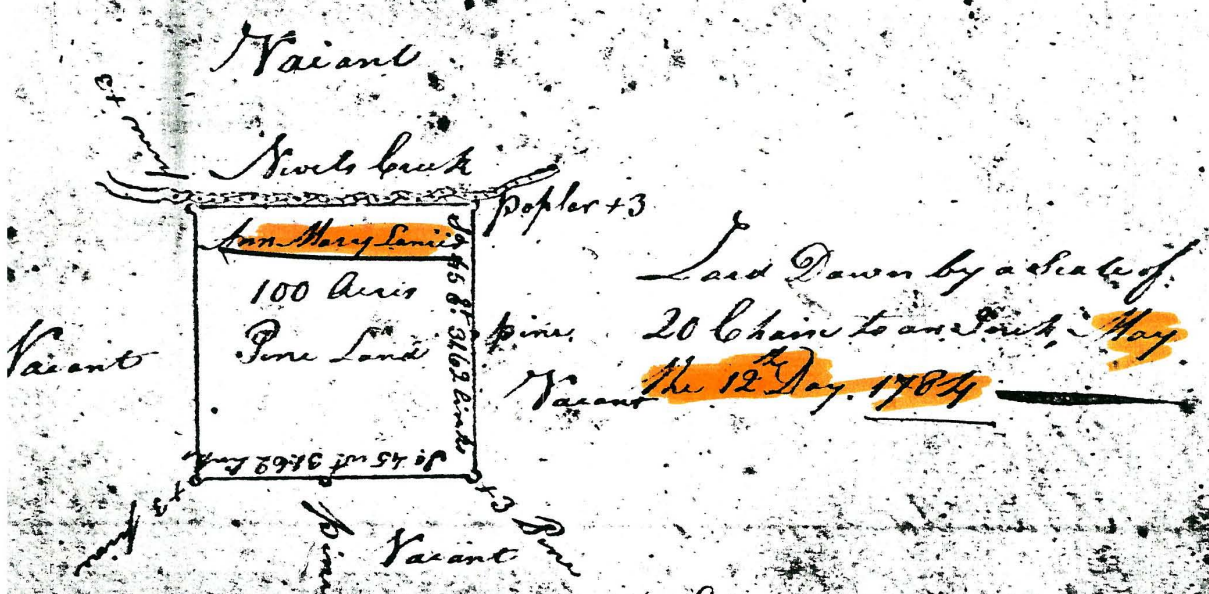 Vacant
pine +3
Creek
poplar +3
Ann Mary
100 Acres
Pine Land
So 45 Et 31:62 links
pine
Vacant
Vacant
Laid Down by a Scale of
20 Chain to an Inch May
the 12th Day. 1784
So 45 wt 31:62 links
+3
pine
pine
Vacant
+3 Pine